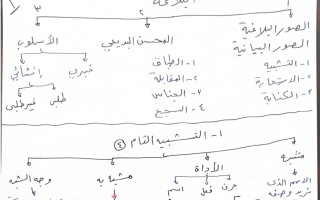 ١ ٢ ٣
الصور البلاغية المحسن البديعي الأسلوب
الصور البيانية
١- التشبيه ١- الطباق خبري إنشائي
٢- الاستعارة ٢- المقابلة طلبي غير طلبي
٣- الكناية ٣- الجناس
٤- السجع
١- التشبيه التام ٤
مشبه الأداة مشبه به وجه الشبه
الاسم الذى حرف فعل اسم
نريد وصفه